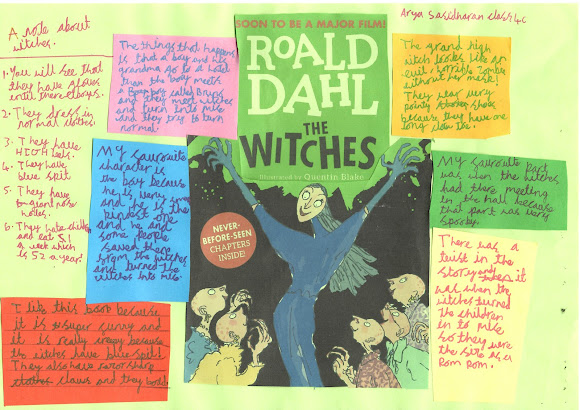 A note about
witches.
1. You will see that
they have gloves
until there elbows.
2. They dress in
normal clothes.
3. They have
HIGH heels.
4. They have
blue spit.
5. They have
giant nose
holes.
6. They hate children
and eat 51
a week which
is 52 a year!
The things that happens
is that a boy and his
grandma go to a hotel
than the boy meets
a boy called Bruno
and they meet witches
and turn into mise
and they try to turn
normal.
My favourite
character is
the boy because
he is very
and he is the
kindest one
and he and
some people
saved there
from the witches
and turned the
witches into mise.
I like this book because
it is super funny and
it is really creepy because
the witches have blue spit!
They also have rasor sharp
claws and they
SOON TO BE A MAJOR FILM!
ROALD
DAHL
THE
WITCHES
Illustrated by Quentin Blake
NEVER-
BEFORE-SEEN
CHAPTERS
INSIDE!
Arya Sasidharan class 4C
The grand high
witch looks like an
evil, terrible zombie
without her mask!
They wear very
pointy shoes
because they have one
long claw toe.
My favourite part
was when the witches
had there meeting
in the hall because
that part was very
spooky.
There was a
twist in the
story and it
was when the
witches turned
the children
in to mise
so they were
the size as a
Pom Pom.